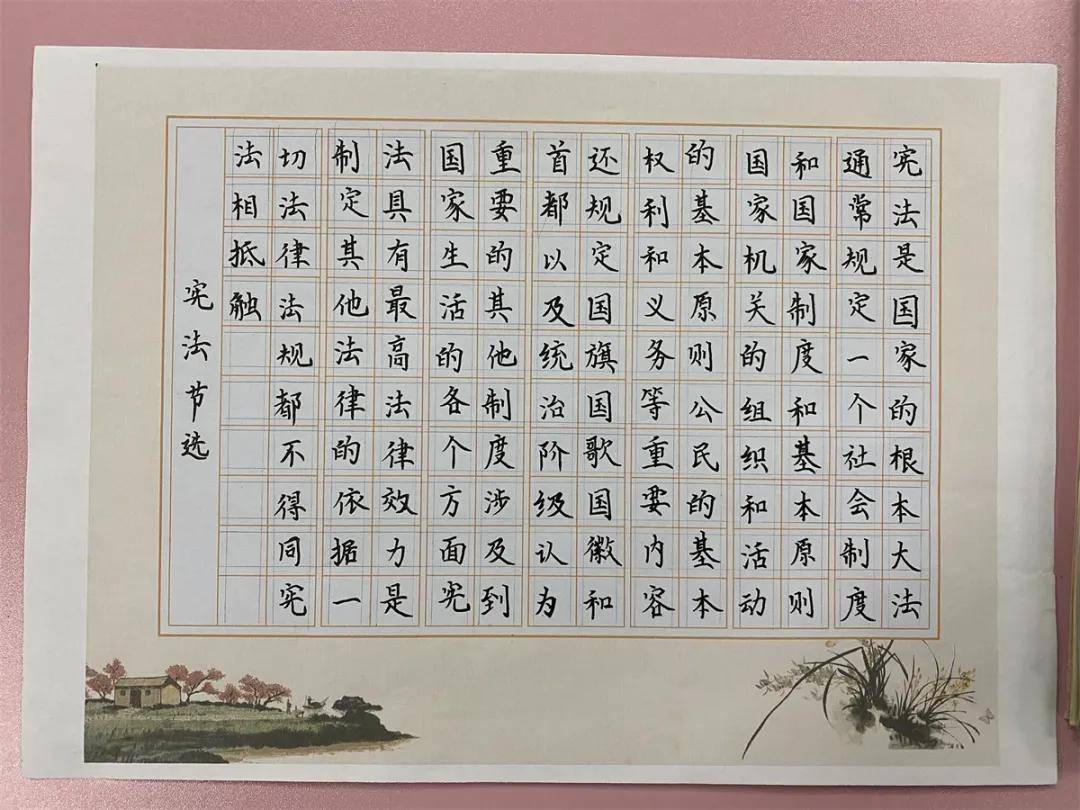 宪法是国家的根本大法
通常规定一个社会制度
和国家制度和基本原则
国家机关的组织和活动
的基本原则公民的基本
权利和义务等重要内容
还规定国旗国歌国徽和
首都以及统治阶级认为
重要的其他制度涉及到
国家生活的各个方面宪
法具有最高法律效力是
制定其他法律的依据一
切法律法规都不得同宪
法相抵触
宪法节选